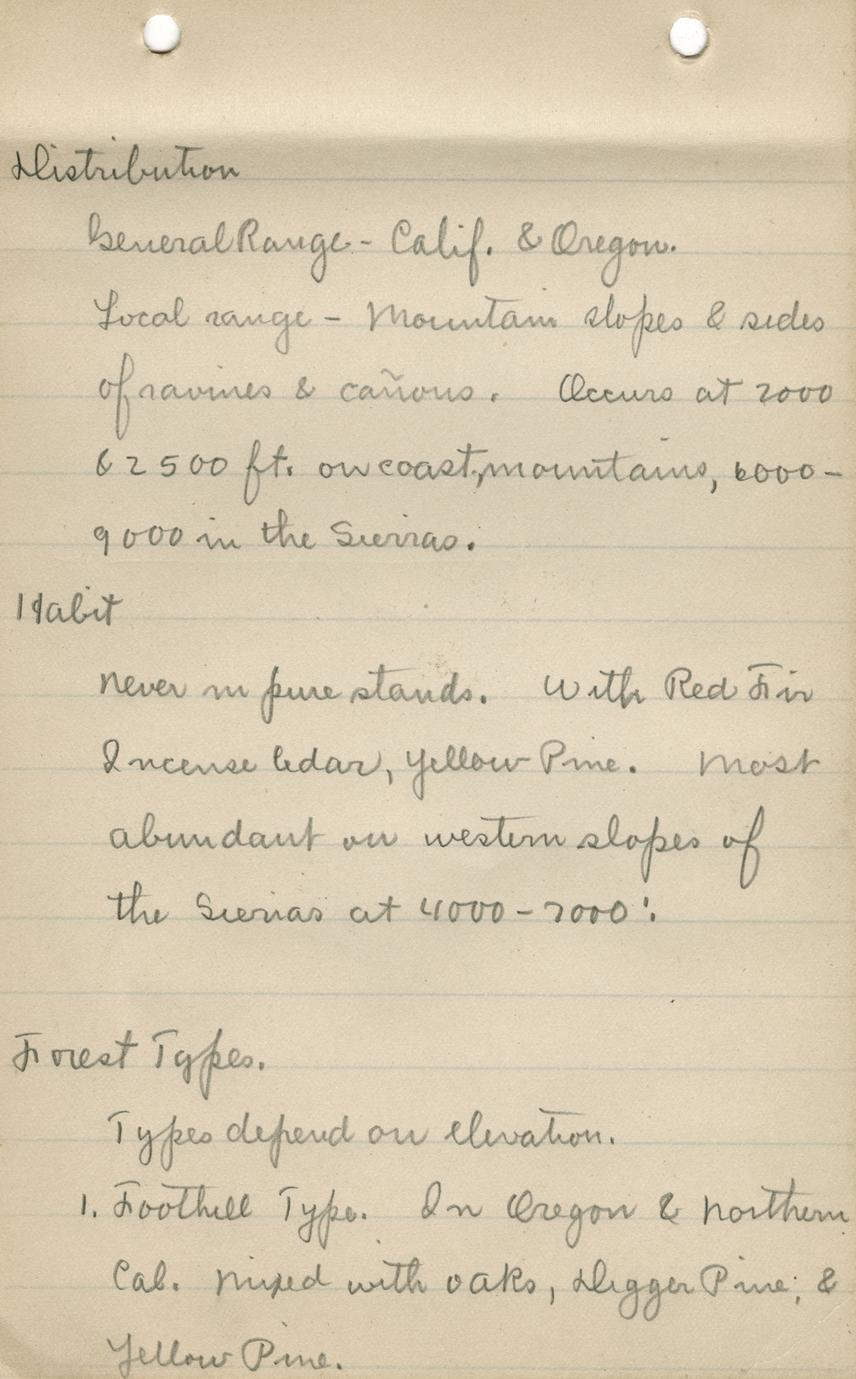 Distribution
General Range - Calif. & Oregon.
Local range - Mountain slopes & sides
of ravines & cañons. Occurs at 2000
& 2500 ft. on coast, mountains, 6000-
9000 in the Sierras.
Habit
Never in pure stands. With Red Fir
Incense Cedar, Yellow Pine. Most
abundant on western slopes of
the Sierras at 4000-7000'.
Forest Types.
Types depend on elevation.
1. Foothill Type. In Oregon & Northern
Cal. Mixed with oaks, Digger Pine, &
Yellow Pine.